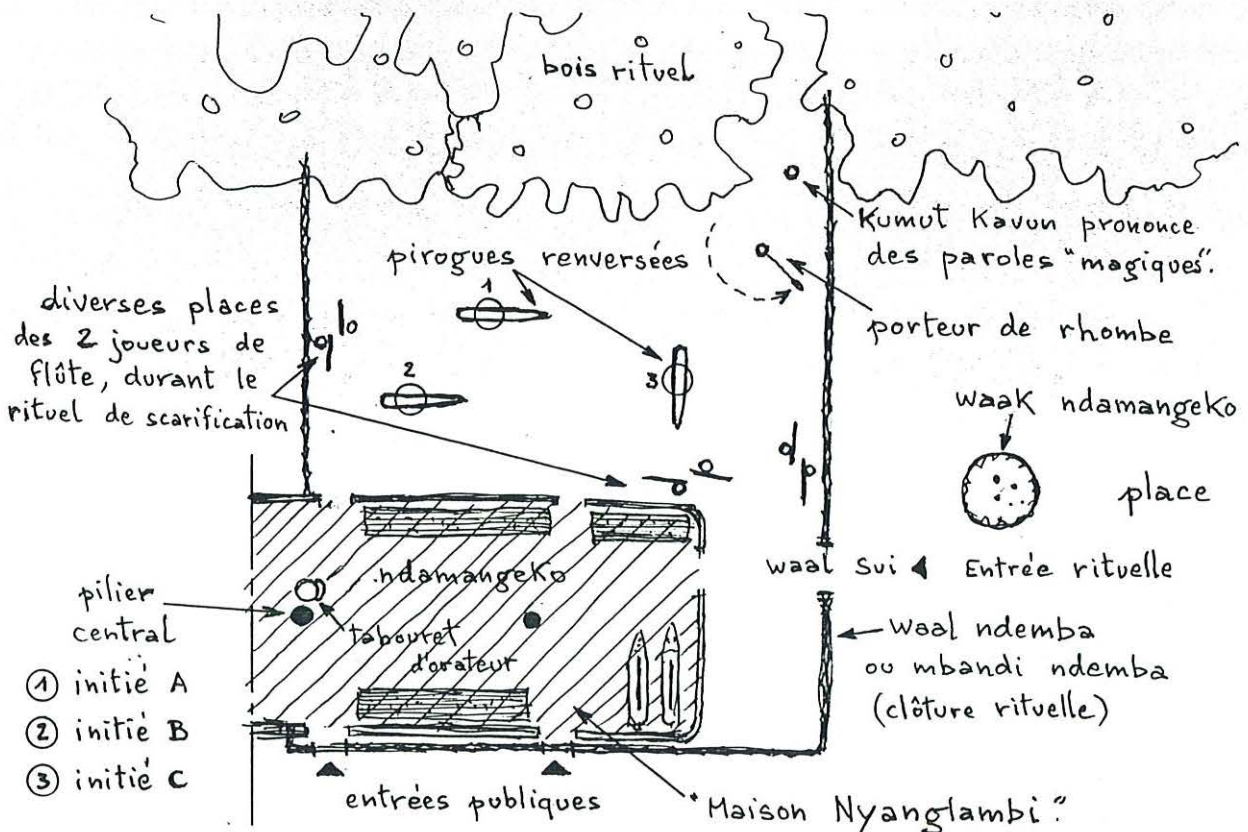 bois rituel
Kumut Kavun prononce
des paroles "magiques".
pirogues renversées
1
diverses places
des 2 joueurs de
flûte, durant le
rituel de scarification
porteur de rhombe
2
3
waak ndamangeko
place
waal sui
Entrée rituelle
ndamangeko
pilier
central
tabouret
d'orateur
waal ndemba
ou mbandi ndemba
(clôture rituelle)
① initié A
② initié B
③ initié C
entrées publiques
"Maison Nyanglambi".